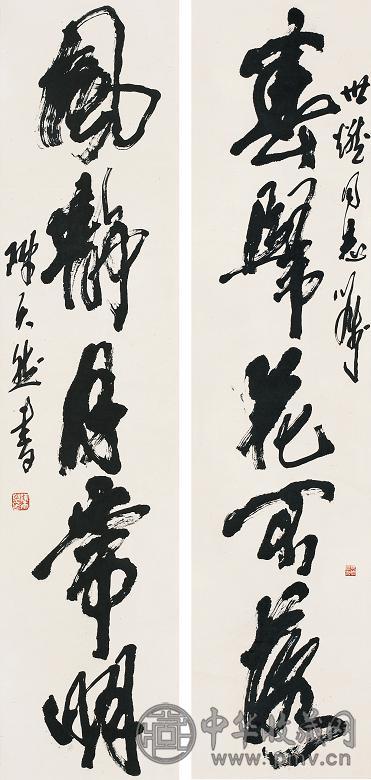 春歸花不落
世
同志
風靜月常明
陳天然書
中华收藏网